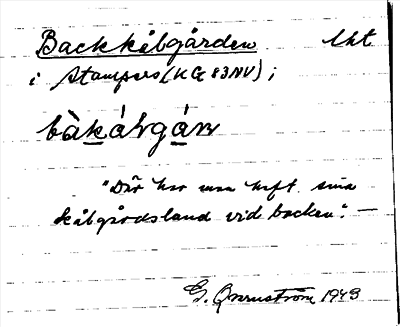 Backkålgården lkt
i Stampers (KG 83NV);
bàkålgáṇ
"Där har man haft sina
kålgårdsland vid backen". —
G. Qvarnström 1943